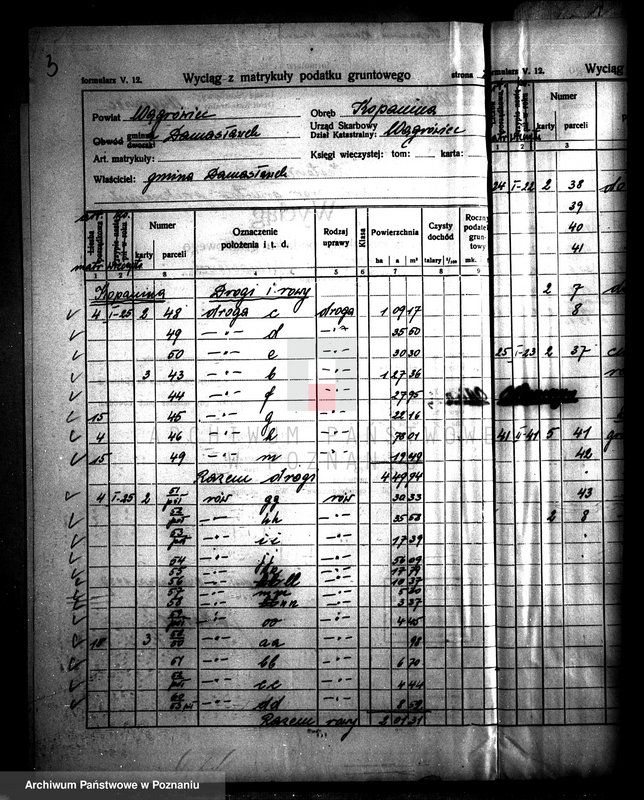 3
formularz V. 12. Wyciąg z matrykuły podatku gruntowego strona
Powiat Wągrowiec
Obręb Kopanina
Obwód gminny dworski Damasławek
Urząd Skarbowy
Dział Katastralny: Wągrowiec
Art. matrykuły:
Księgi wieczystej: tom: karta:
Właściciel: gmina Damasławek
Numer
karty parceli
Oznaczenie położenia i t. d.
Rodzaj uprawy
Klasa
Powierzchnia
ha a m²
Czysty dochód
talary 1/100
Roczny podatek gruntowy
mk.
1 2 3 4 5 6 7 8 9
Kopanina Drogi i rowy
4 I-25 2 48 droga c droga 1 09 17
49 —„— d —„— 35 50
50 —„— e —„— 30 30
3 43 —„— b —„— 1 27 36
44 —„— f —„— 27 95
15 45 —„— g —„— 22 16
4 46 —„— h —„— 78 01
15 49 —„— m —„— 19 49
Razem drogi 4 49 94
4 I-25 2 51 rów gg rów 30 33
—„— hh —„— 35 58
—„— ii —„— 17 39
54 —„— jj —„— 56 09
55 17 79
56 10 37
57
58 3 37
—„— oo —„— 4 45
18 3 —„— aa —„— 98
61 —„— bb —„— 6 70
—„— cc —„— 4 44
—„— dd —„— 8 50
Razem rowy 2 01 31
formularz V. 12. Wyciąg
Numer
karty parceli
1 2 3
24 I-22 2 38
39
40
41
2 7
8
25 I-23 2 37
41 II-41 5 41
42
43
2 8
ARCHIWUM PAŃSTWOWE
W POZNANIU
Archiwum Państwowe w Poznaniu